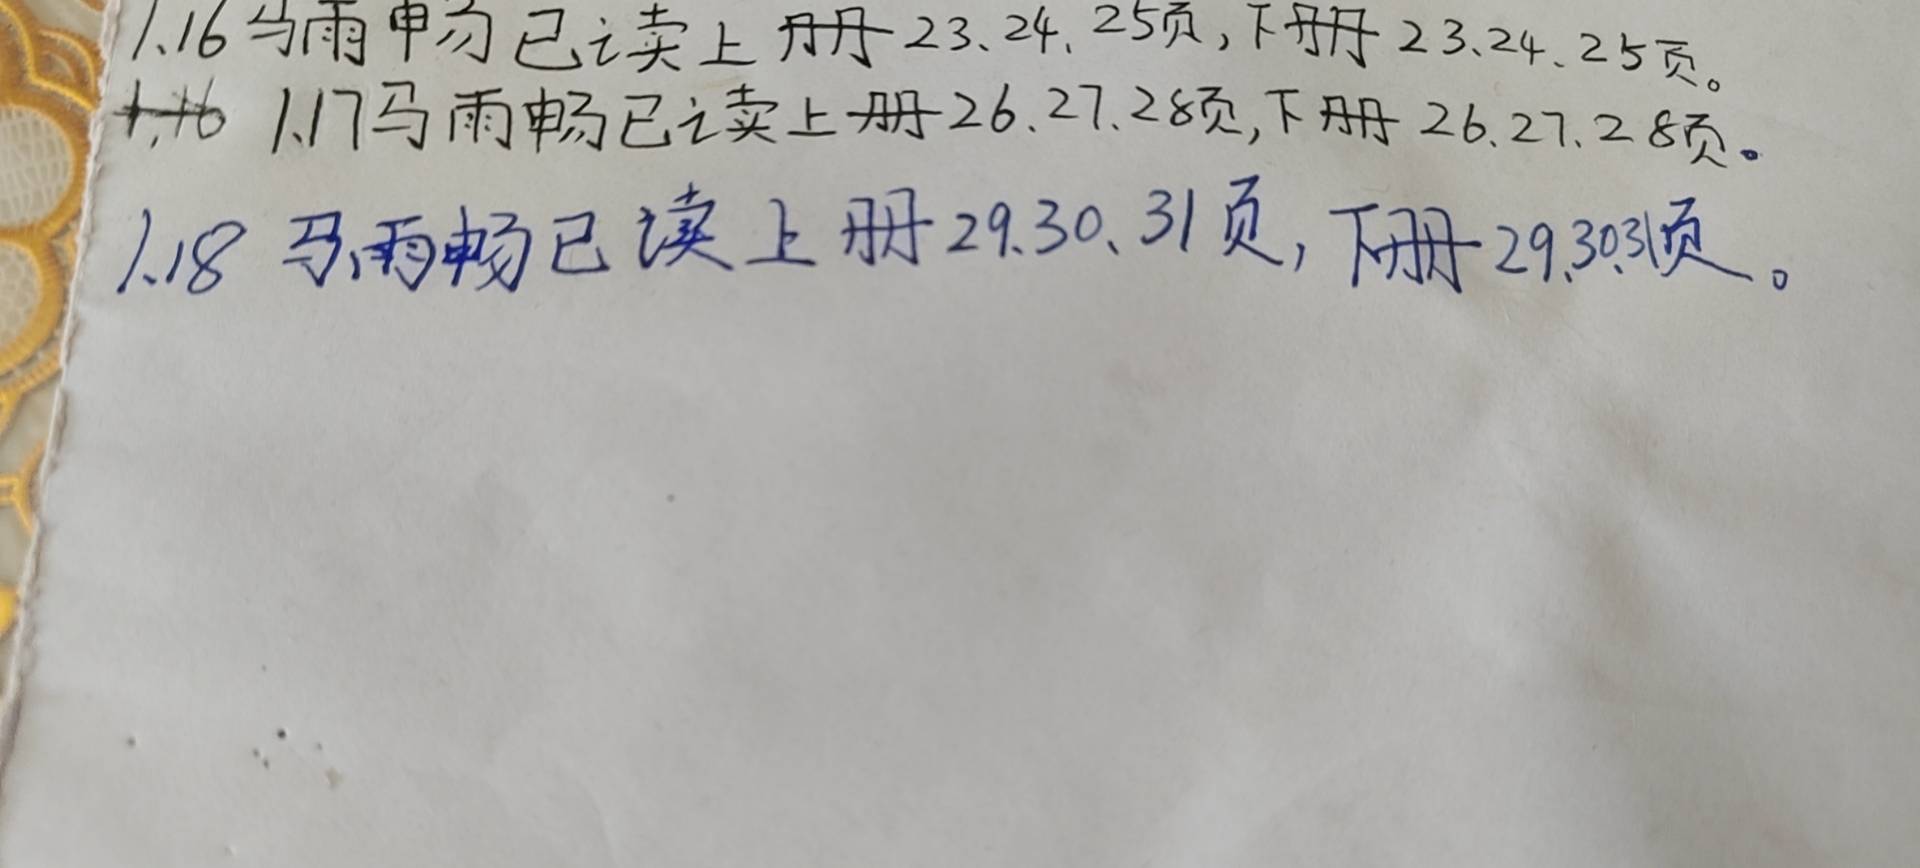 1.16马雨畅已读上册23、24、25页,下册23、24、25页。
1.16 1.17马雨畅已读上册26.27.28页,下册26.27.28页。
1.18马雨畅已读上册29.30、31页,下册29.30.31页。